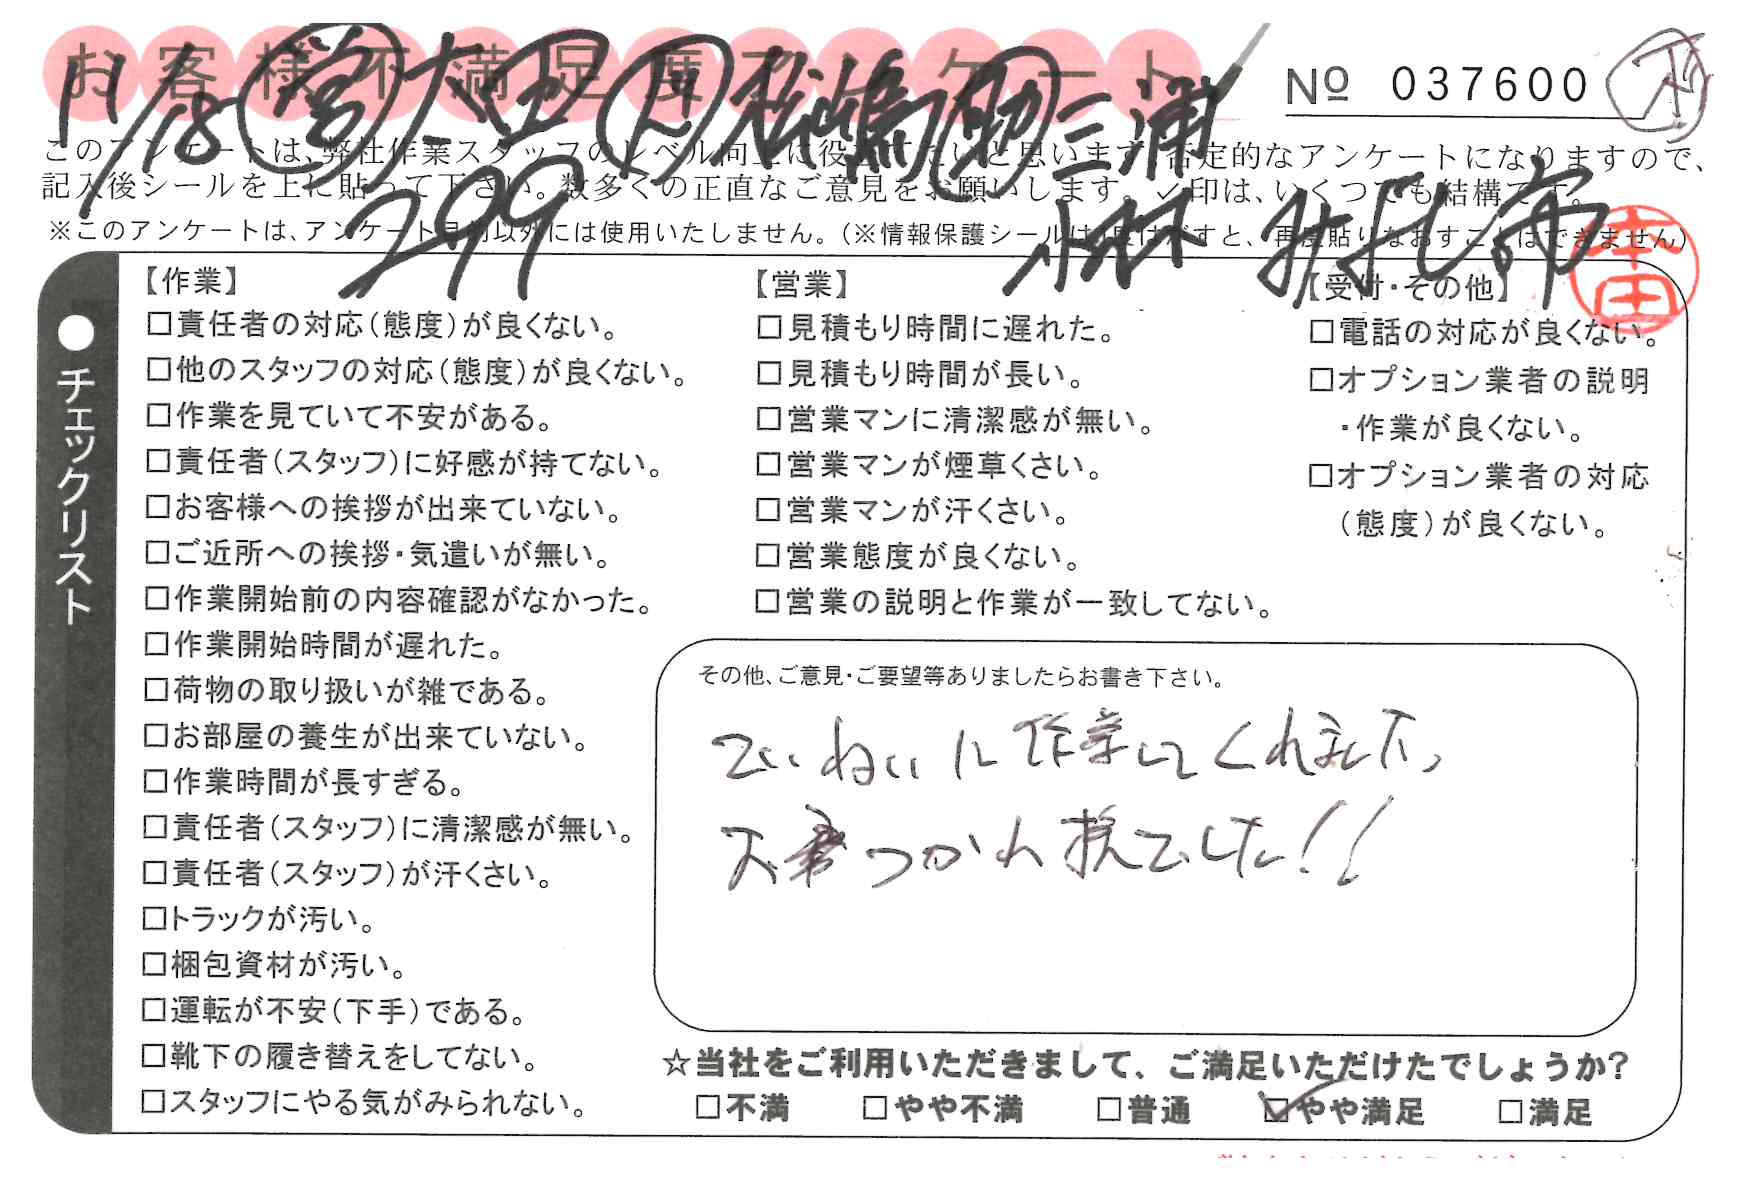 お客様不満足度アンケート
Nº 037600
11/18 営 太田 L 松嶋 助 三浦
299 小林
このアンケートは、弊社作業スタッフのレベル向上に役立てたいと思います。否定的なアンケートになりますので、
記入後シールを上に貼って下さい。数多くの正直なご意見をお願いします。✓印は、いくつでも結構です。
※このアンケートは、アンケート目的以外には使用いたしません。(※情報保護シールは1度はがすと、再度貼りなおすことはできません)
本田
●チェックリスト
【作業】
□責任者の対応(態度)が良くない。
□他のスタッフの対応(態度)が良くない。
□作業を見ていて不安がある。
□責任者(スタッフ)に好感が持てない。
□お客様への挨拶が出来ていない。
□ご近所への挨拶・気遣いが無い。
□作業開始前の内容確認がなかった。
□作業開始時間が遅れた。
□荷物の取り扱いが雑である。
□お部屋の養生が出来ていない。
□作業時間が長すぎる。
□責任者(スタッフ)に清潔感が無い。
□責任者(スタッフ)が汗くさい。
□トラックが汚い。
□梱包資材が汚い。
□運転が不安(下手)である。
□靴下の履き替えをしてない。
□スタッフにやる気がみられない。
【営業】
□見積もり時間に遅れた。
□見積もり時間が長い。
□営業マンに清潔感が無い。
□営業マンが煙草くさい。
□営業マンが汗くさい。
□営業態度が良くない。
□営業の説明と作業が一致してない。
【受付・その他】
□電話の対応が良くない。
□オプション業者の説明
・作業が良くない。
□オプション業者の対応
(態度)が良くない。
その他、ご意見・ご要望等ありましたらお書き下さい。
ていねいに作業してくれました。
大変つかれ様でした!!
☆当社をご利用いただきまして、ご満足いただけたでしょうか?
□不満 □やや不満 □普通 ☑やや満足 □満足